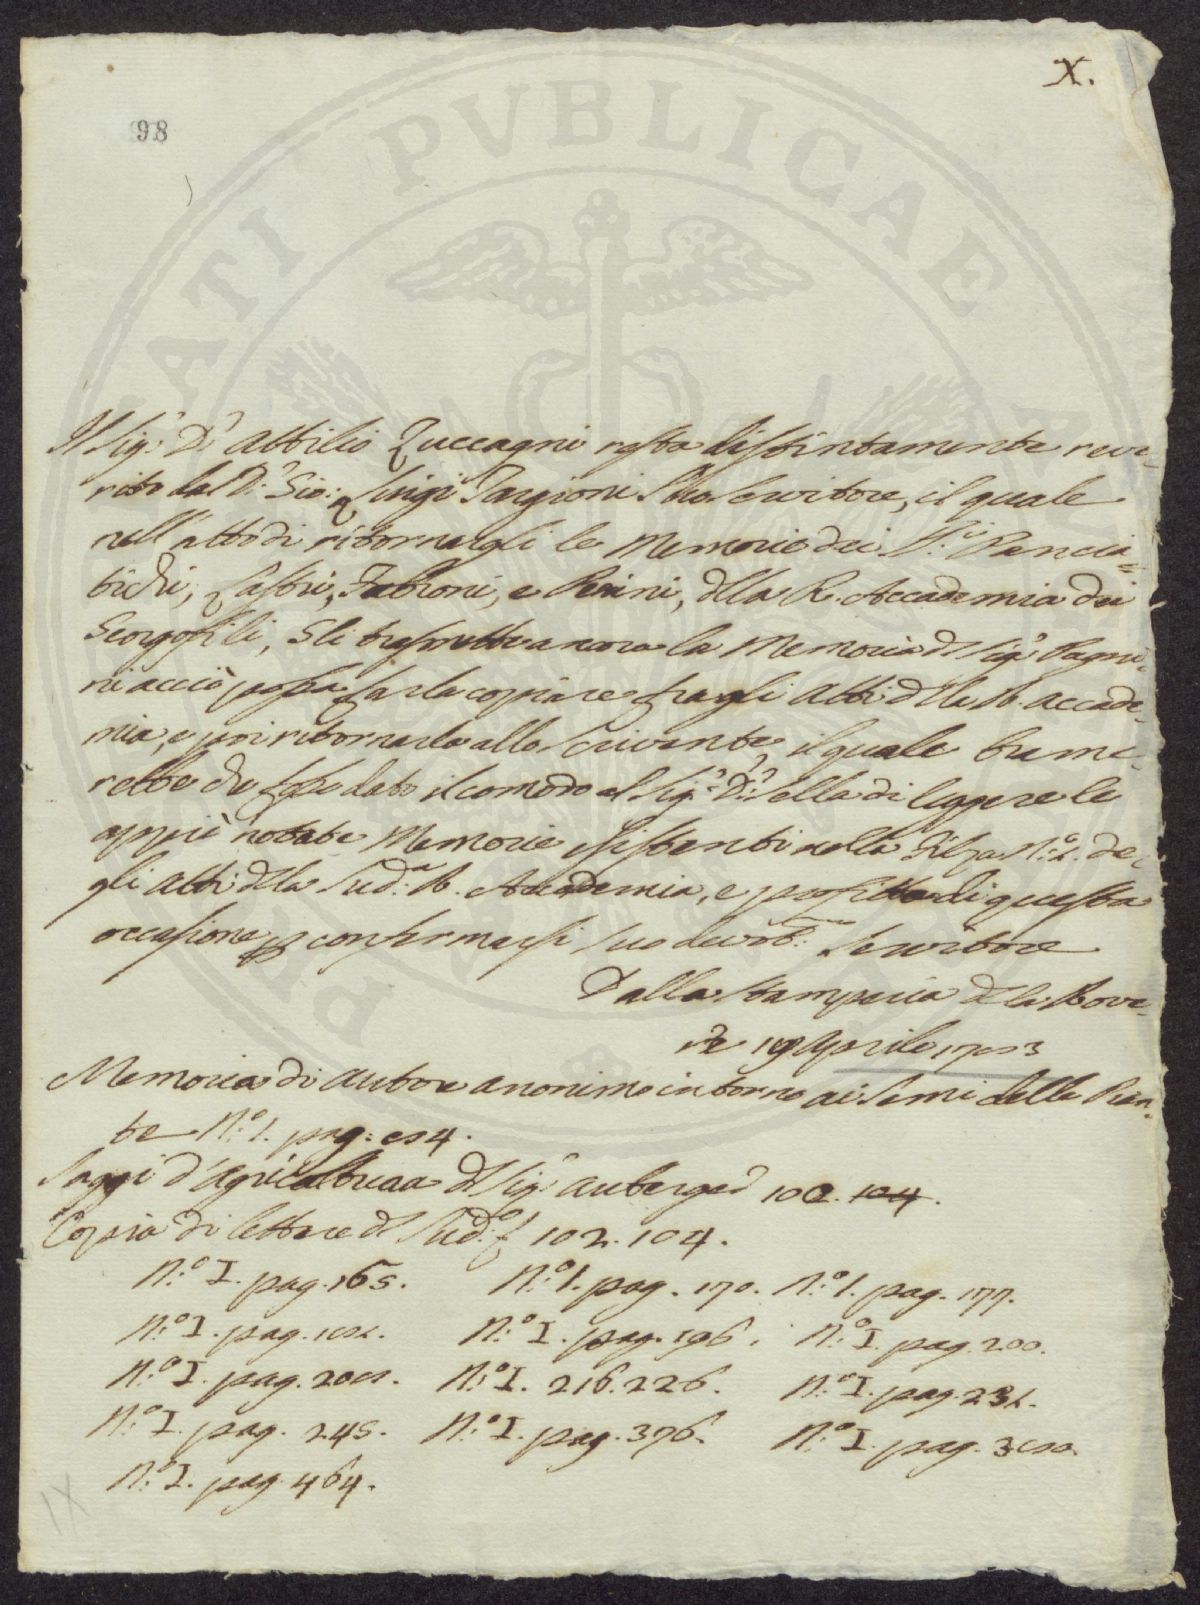 X.
98
Il Sig.r D.r Attilio Zuccagni resta distintamente reve-
rito dal D.r Gio: Luigi Targioni Suo Servitore, il quale
nell'atto di ritornargli le Memorie dei SS.ri Pancia=
tichi, Lastri, Fabroni, e Perini, della R. Accademia dei
Georgofili, Gli trasmette ancora la Memoria del Sig.r Pagni-
ni acciò possa farla copiare fra gli Atti della R. Accade-
mia, e poi ritornarla allo Scrivente, il quale brame-
rebbe che fosse dato il comodo al Sig.r D.r Sella di leggere le
appiè notate Memorie esistenti nella Filza N.o 1. de-
gli Atti della Sud.a R. Accademia, e profitta di questa
occasione per confermarsi Suo devot.mo Servitore
Dalla Stamperia della Rove-
re 19 Aprile 1783
Memoria di autore anonimo intorno ai Semi delle Pian-
te N.o 1. pag: 84.
Saggi d'Agricoltura del Sig.r Auberged 102. 104.
Copia di lettere del Sud.o f 102. 104.
N.o I. pag. 165. N.o 1. pag. 170. N.o 1. pag. 177.
N.o I. pag. 182. N.o I. pag. 196. N.o I. pag. 200.
N.o I. pag. 208. N.o I. 216. 226. N.o I. pag. 232.
N.o I. pag. 245. N.o I. pag. 376. N.o I. pag. 380.
N.o I. pag. 464.
IX
PVBLICAE